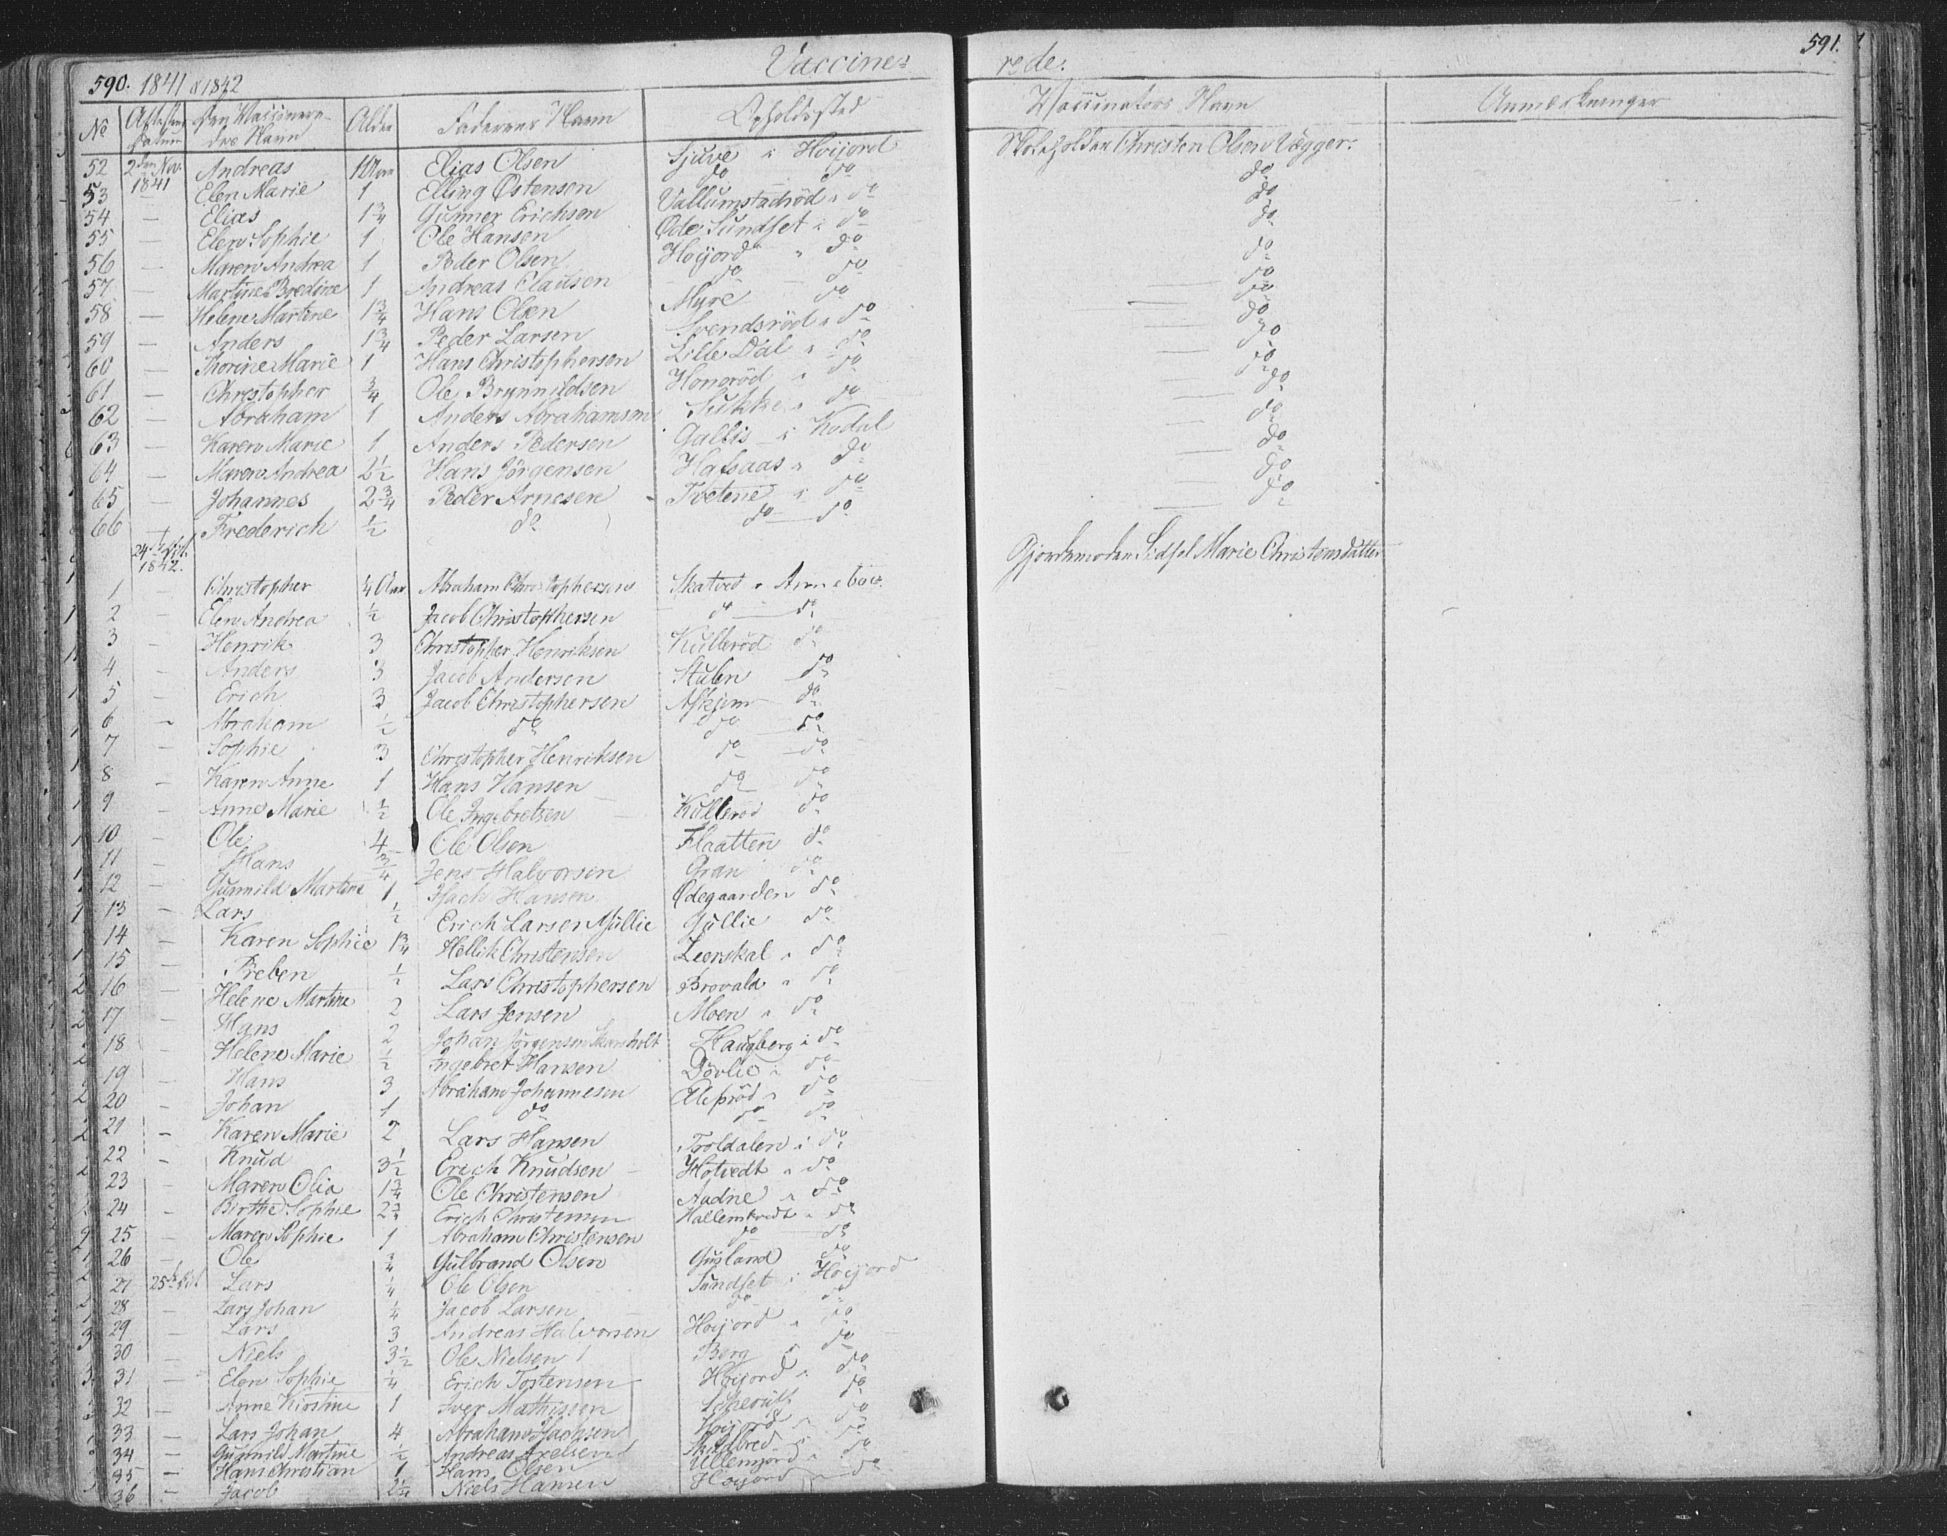 590. 1841 & 1842 Vaccine=
No Attestens Datum Den Vaccinere=des Navn Alder Faderens Navn Opholdssted
52 2den Nov. 1841 Andreas 1 Elias Olsen Sjuve i Høijord
53 — Elen Marie 1 Elling Østensen do do
54 — Elias 1¾ Gunner Erichsen Vallumstadrød " do
55 — Elen Sophie 1 Ole Hansen Øde Sundset i do
56 — Maren Andrea 1 Peder Olsen Høijord " do
57 — Martine Bredine 1 Andreas Clausen do do
58 — Helene Martine 1¾ Hans Olsen Myre do
59 — Anders 1¾ Peder Larsen Svendsrød " do
60 — Thorine Marie 1 Hans Christophersen Lille Dal " do
61 — Christopher ¾ Ole Brynnildsen Honerød " do
62 — Abraham 1 Anders Abrahamsen Sukke " do
63 — Karen Marie 1 Anders Pedersen Gallis i Kodal
64 — Maren Andrea 2½ Hans Jørgensen Hafsaas " do
65 — Johannes 2¾ Peder Arnesen Tvetene i do
66 — Frederich ½ do do do
24de 1842.
1 — Christopher 4 Abraham Christophersen Skatved " Annebøe
2 — Elen Andrea ½ Jacob Christophersen do do
3 — Henrik 3 Christopher Henriksen Kullerød do
4 — Anders 3 Jacob Andersen Stuben do
5 — Erich 3 Jacob Christophersen Askjem do
6 — Abraham ½ do do do
7 — Sophie 3 Christopher Henriksen do do
8 — Karen Anne 1 Hans Hansen do do
9 — Anne Marie ½ Ole Ingebretsen Kullerød do
10 — Ole 4 Ole Olsen Flaatten do
11 — Hans ¾ Jens Halvorsen Gran do
12 — Gunnild Martine 1 Isach Hansen Ødegaarden do
13 — Lars ½ Erich Larsen Gullie do
14 — Karen Sophie 1¾ Hellik Christensen Leerskal " do
15 — Preben ½ Lars Christophersen Brovald " do
16 — Helene Martine 2 Lars Jensen Moen " do
17 — Hans 2 Johan Jørgensen Haugberg i do
18 — Helene Marie ½ Ingebret Hansen Døvlie " do
19 — Hans 3 Abraham Johannesen do
20 — Johan 1 do do do
21 — Karen Marie 2 Lars Hansen Troldalen i do
22 — Knud 3½ Erich Knudsen Hotvedt " do
23 — Maren Olia 1¾ Ole Christensen Aadne " do
24 — Birthe Sophie 2¾ Erich Christensen " do
25 — Maren Sophie 1 Abraham Christensen do do
26 — Ole ¾ Gulbrand Olsen Gusland do
27 25de Lars ¼ Ole Olsen Sundset i Høijord
28 — Lars Johan ¼ Jacob Larsen do do
29 — Lars 3 Andreas Halvorsen Høijord " do
30 — Niels 3½ Ole Nielsen Berg " do
31 — Elen Sophie ¼ Erich Tostensen Høijord " do
32 — Anne Kirstine 1 Iver Mathissen do
33 — Lars Johan 4 Abraham Isachsen Høijord " do
34 — Gunnild Martine ½ Andreas Axelsen do
35 — Hans Christian 1 Hans Olsen do
36 — Jacob 2¼ Niels Hansen Høijord do
rede. 591.
Vaccinators Navn Anmerkninger
Skoleholder Christen Olsen Vegger.
do
do
do
do
do
do
do
do
do
do
do
do
do
do
Gjordemoder Sidsel Marie Christensdatter